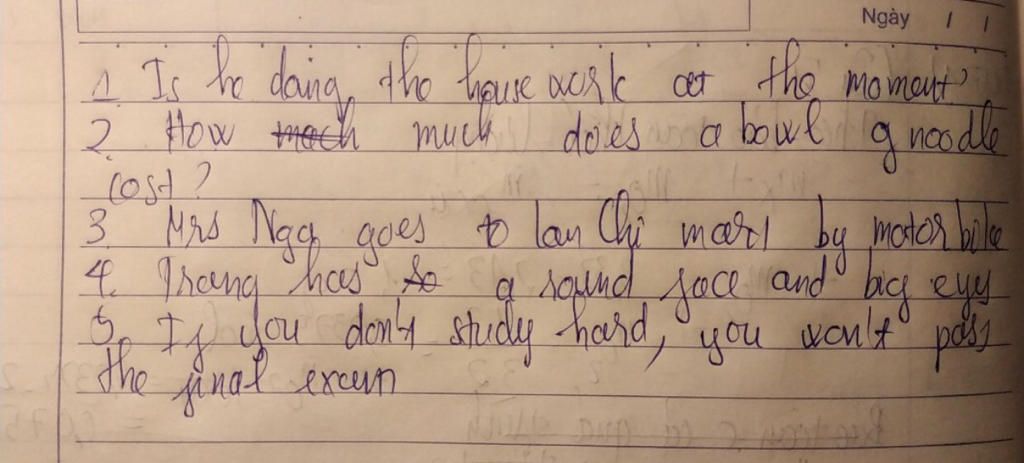 Ngày / /
1. Is he doing the house work at the moment?
2. How much much does a bowl of noodle
cost?
3. Mrs Nga goes to lan Chi mart by motorbike
4. Trang has a round face and big eyes
5. If you don't study hard, you won't pass
the final exam